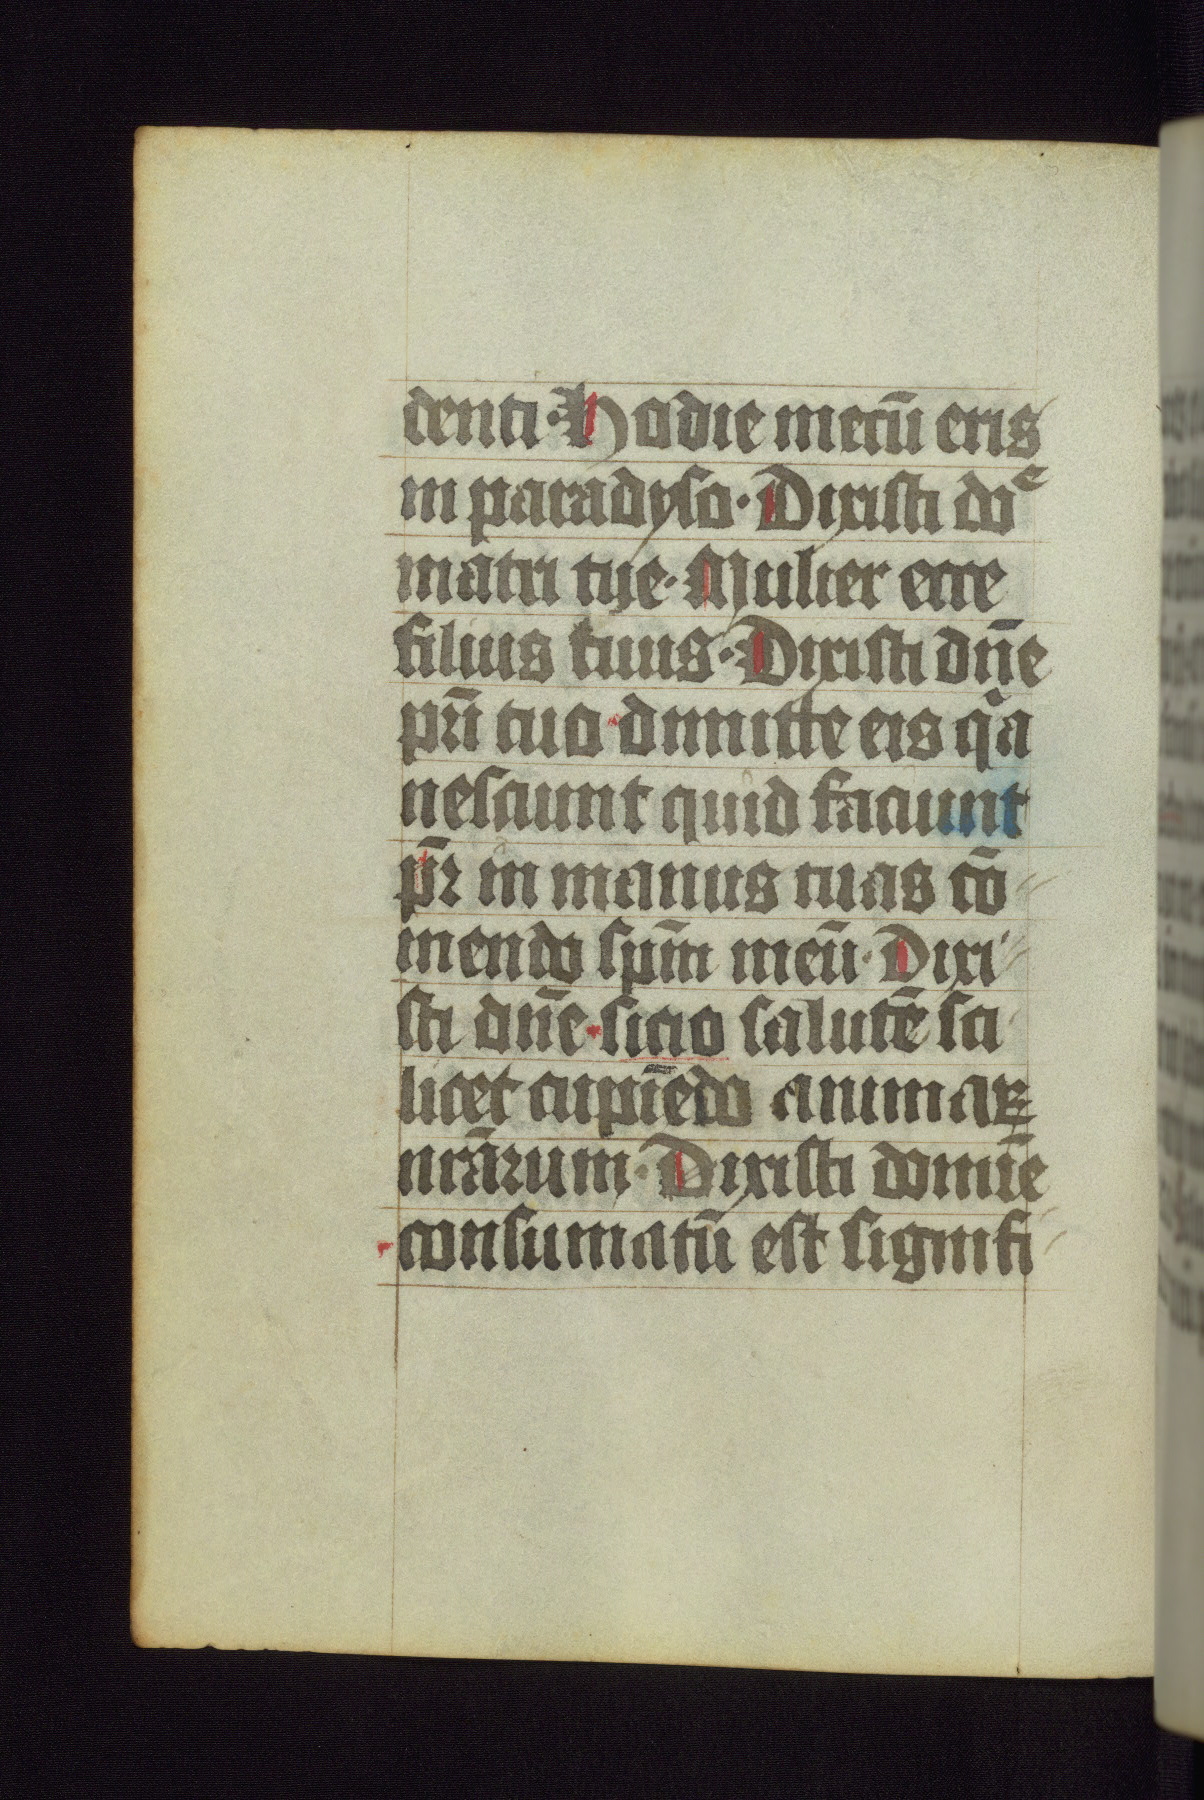 denti· Hodie mecū eris
in paradyso· Dixisti doᵉ
matri tue· Mulier ecce
filius tuus· Dixisti dn̄e
pr̄i tuo· dimitte eis qͥa
nesciunt quid faciunt
pr̄ in manus tuas cō
mendo spm̄ meū· Dixi
sti dn̄e· sicio salutē sci
licet cupiēdo animaꝝ
nrārum· Dixisti domīe
consumatū est signifi